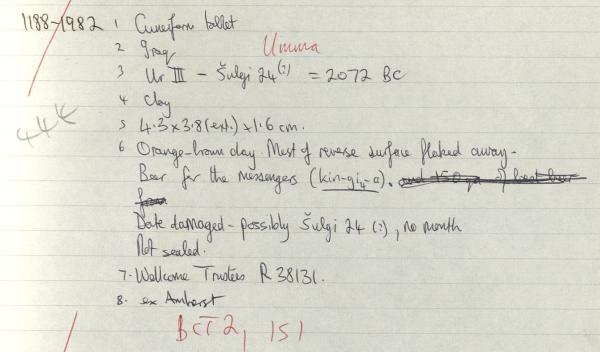 1188-1982 1 Cuneiform tablet
2 Iraq Umma
3 Ur III - Šulgi 24 (?) = 2072 BC
4 Clay
5 4.3 x 3.8 (ext.) x 1.6 cm.
6 Orange-brown clay. Most of reverse surface flaked away -
Beer for the messengers (kin-gi4-a).
Date damaged - possibly Šulgi 24 (?), no month
Not sealed.
7. Wellcome Trustees R 38131.
8. ex Amherst
BCT 2, 151